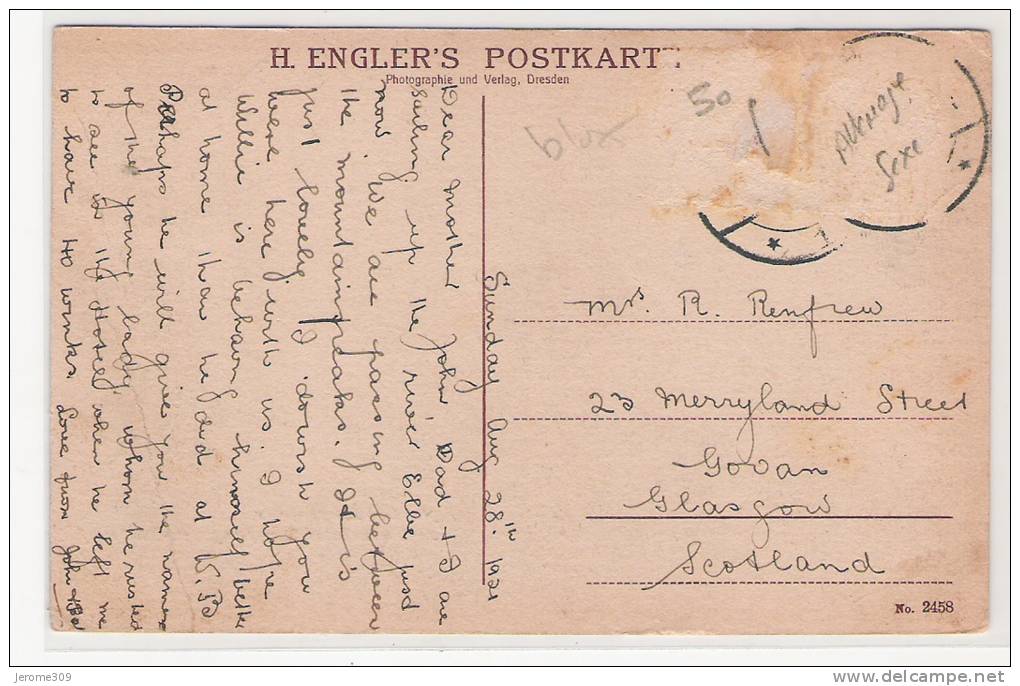 H. ENGLER'S POSTKARTE
Photographie und Verlag, Dresden
50
blox
Sunday Aug 28th. 1921
Dear Mother John Dad + I are
sailing up the river Elbe just
now. We are passing between
the mountain peaks. It is
just lovely I do wish you
were here with us. I hope
Willie is behavng himself better
at home than he did at W. B
Perhaps he will give you the name
of the young lady, whom he rushed
to see in the Hotel when he left me
to have 40 winks. Love from John
Mrs R. Renfrew
23 Merryland Street
Govan
Glasgow
Scotland
No. 2458
jerome309
www.delcampe.net